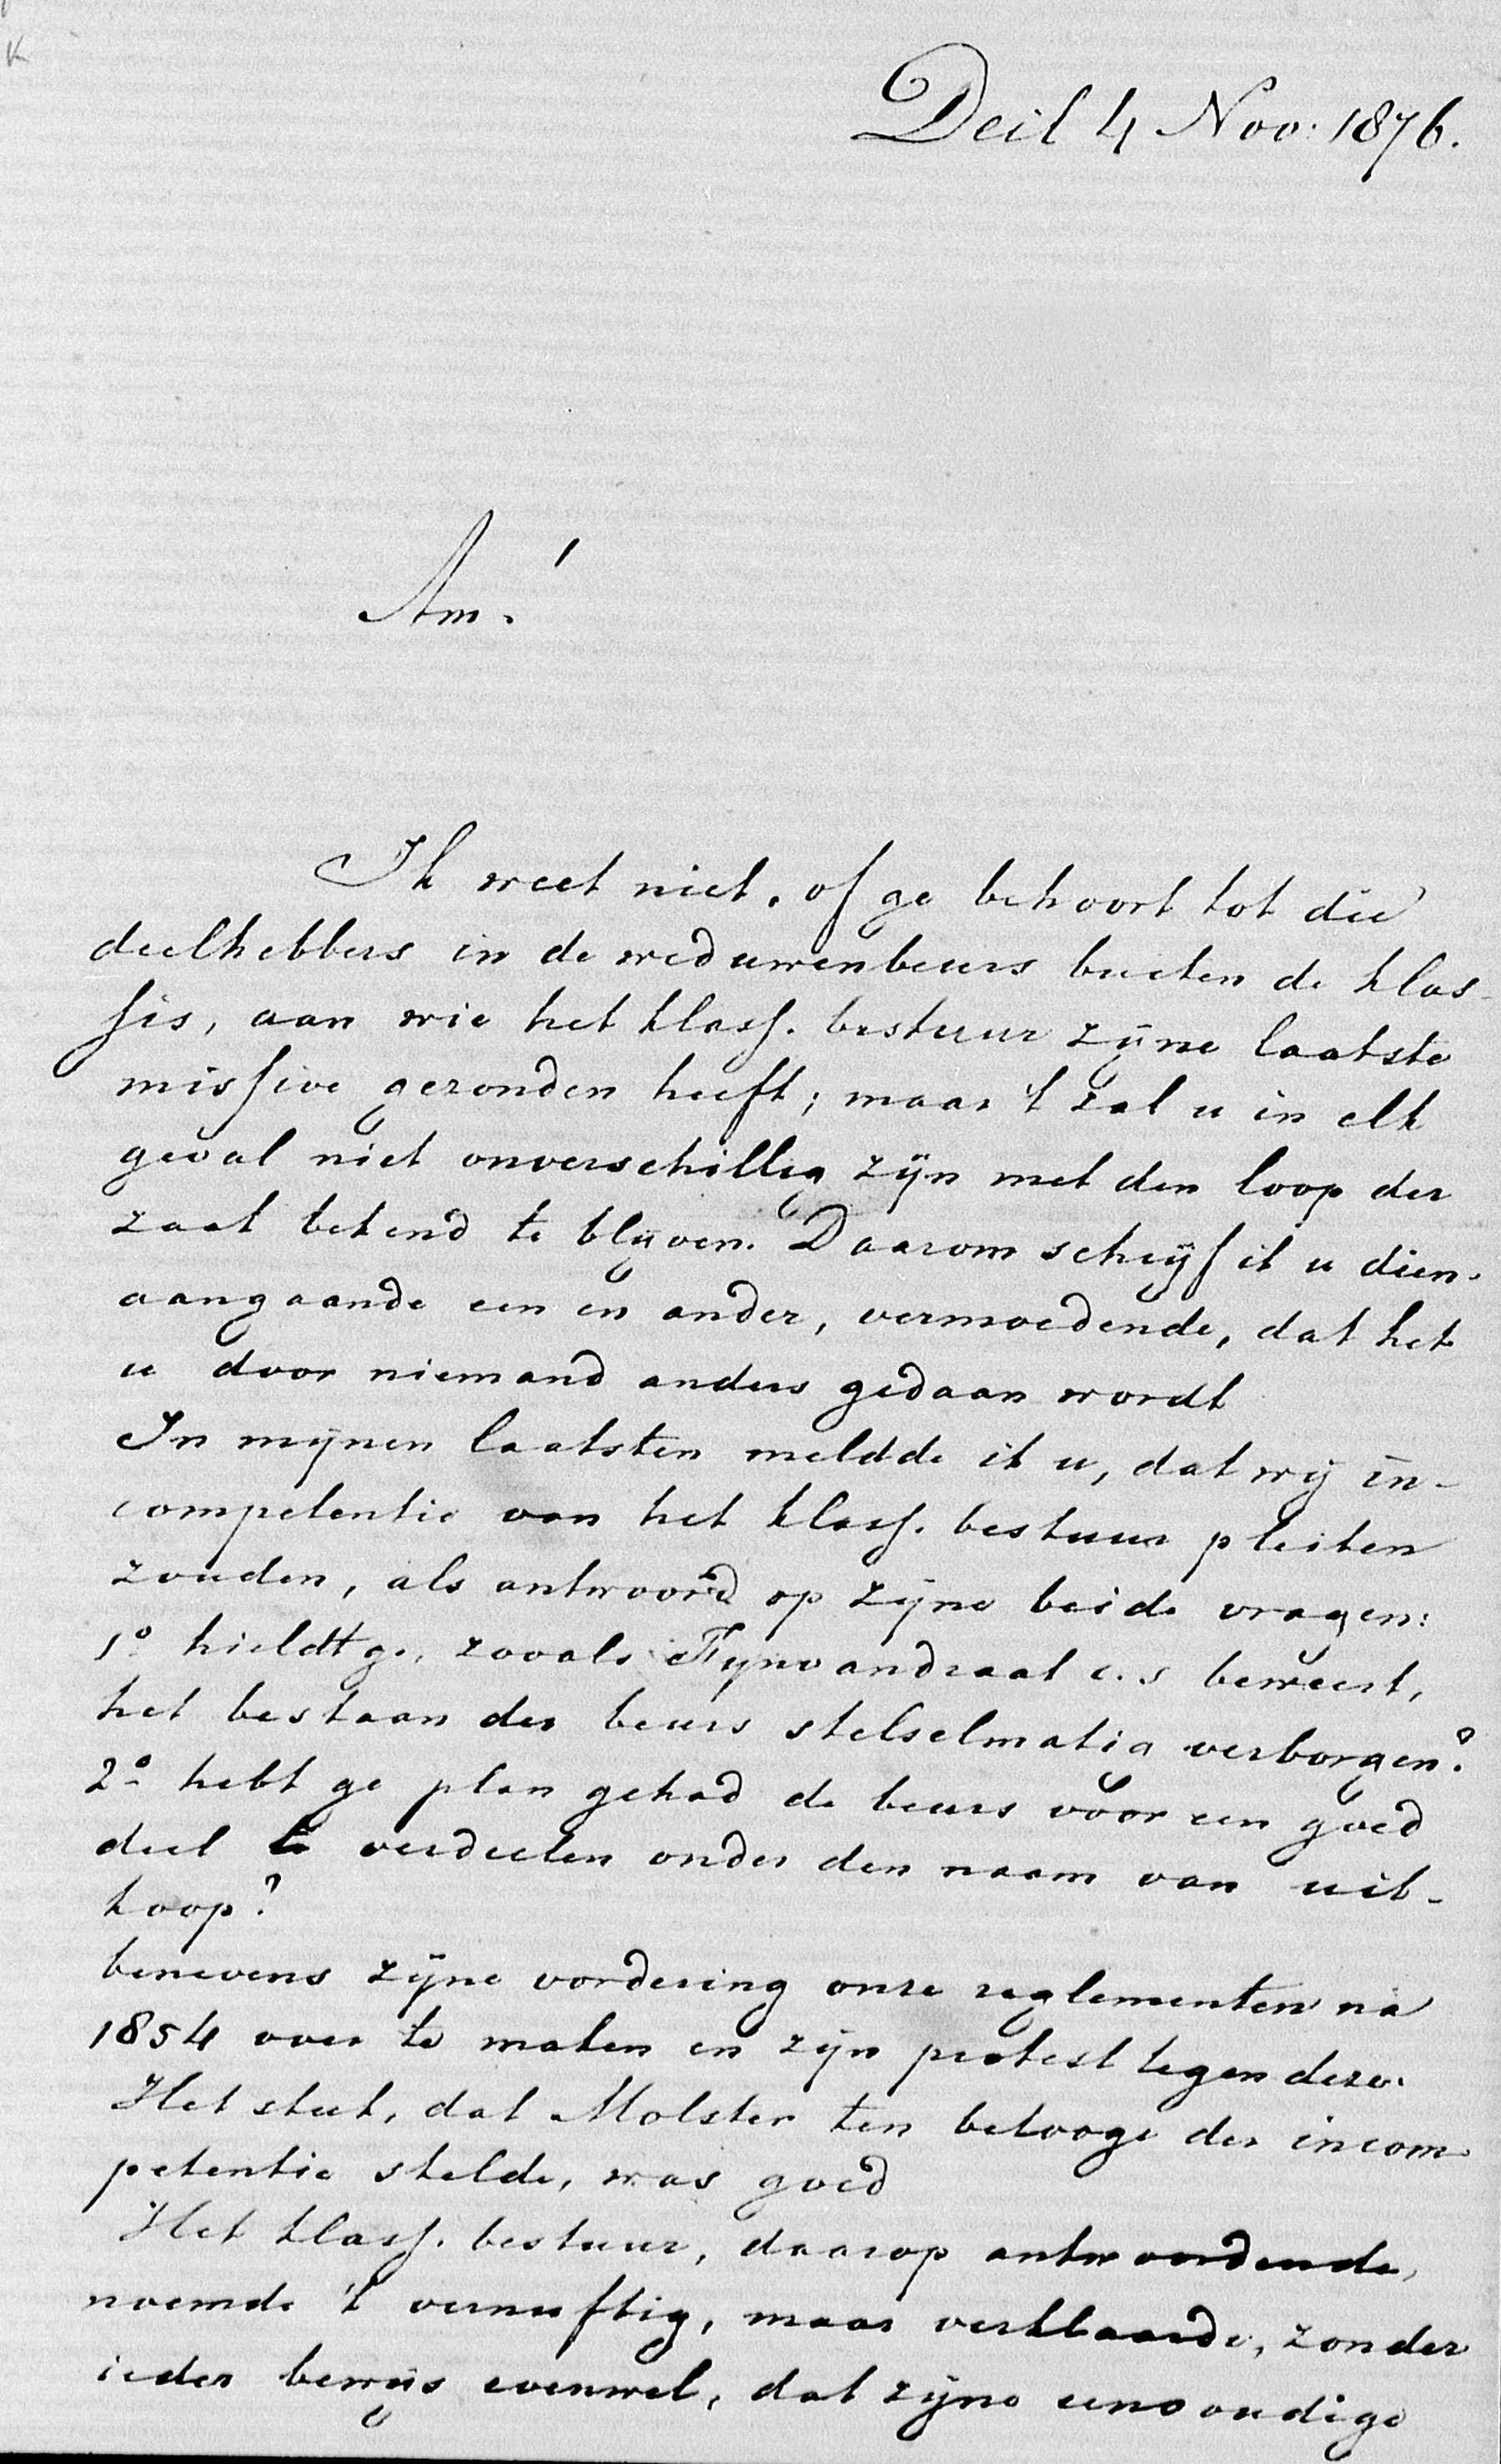 Deil 4 Nov. 1876.
Am.!
Ik weet niet, of ge behoort tot die
deelhebbers in de weduwenbeurs buiten de klas-
sis, aan wie het klass. bestuur zijne laatste
missive gezonden heeft; maar 't zal u in elk
geval niet onverschillig zijn met den loop der
zaak bekend te blijven. Daarom schrijf ik u dien-
aangaande een en ander, vermoedende, dat het
u door niemand anders gedaan wordt
In mijnen laatsten meldde ik u, dat wij in-
competentie van het klass. bestuur pleiten
zouden, als antwoord op zijne beide vragen:
1o hieldt ge, zooals Fynvandraat c.s beweert,
het bestaan der beurs stelselmatig verborgen?
2o hebt ge plan gehad de beurs voor een goed
deel te verdeelen onder den naam van uit-
koop?
benevens zijne vordering onze reglementen na
1854 over te maken en zijn protest tegen deze.
Het stuk, dat Molster ten betooge der incom-
petentie stelde, was goed
Het klass. bestuur, daarop antwoordende,
noemde 't vernuftig, maar verklaarde, zonder
ieder bewijs evenwel, dat zijne eenvoudige